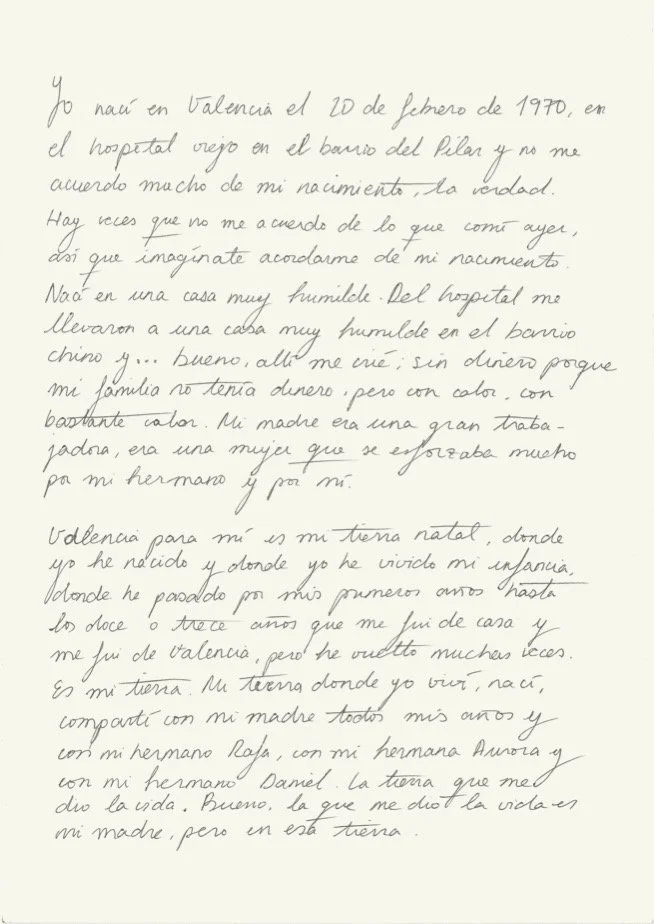 Yo nací en Valencia el 20 de febrero de 1970, en
el hospital viejo en el barrio del Pilar y no me
acuerdo mucho de mi nacimiento, la verdad.
Hay veces que no me acuerdo de lo que comí ayer,
así que imagínate acordarme de mi nacimiento.
Nací en una casa muy humilde. Del hospital me
llevaron a una casa muy humilde en el barrio
chino y... bueno, allí me crié; sin dinero porque
mi familia no tenía dinero, pero con calor, con
bastante calor. Mi madre era una gran traba-
jadora, era una mujer que se esforzaba mucho
por mi hermano y por mí.
Valencia para mí es mi tierra natal, donde
yo he nacido y donde yo he vivido mi infancia,
donde he pasado por mis primeros años hasta
los doce o trece años que me fui de casa y
me fui de Valencia, pero he vuelto muchas veces.
Es mi tierra. Mi tierra donde yo viví, nací,
compartí con mi madre todos mis años y
con mi hermano Rafa, con mi hermana Aurora y
con mi hermano Daniel. La tierra que me
dio la vida. Bueno, la que me dio la vida es
mi madre, pero en esa tierra.